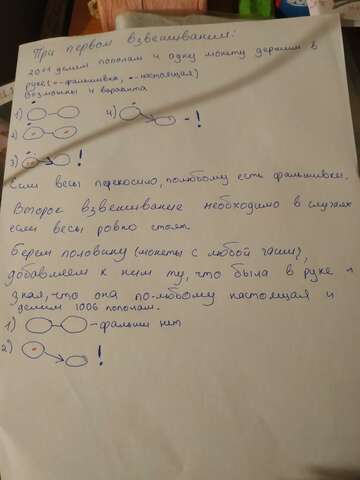 При первом взвешивании:
2011 делим пополам и одну монету держим в
руке (•-фальшивка, •-настоящая)
возможны 4 варианта
1) 4) - !
2)
3) !
Если весы перекосило, полюбому есть фальшивки.
Второе взвешивание необходимо в случаях
если весы ровно стоят.
Берем половину (монеты с любой чаши),
добавляем к ним ту, что была в руке
зная, что она по-любому настоящая и
делим 1006 пополам.
1) - фальши нет
2) !